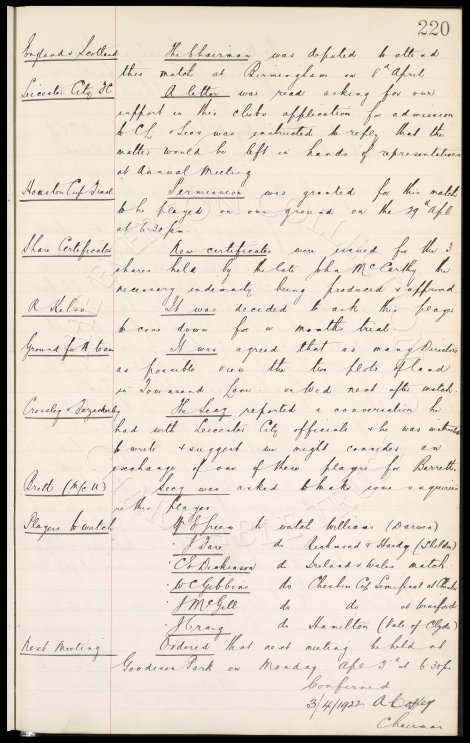 220
England v Scotland The Chairman was deputed to attend
this match at Birmingham on 8th April
Leicester City FC A letter was read asking for our
support in this clubs application for admission
to C.L. Secy was instructed to reply that the
matter would be left in hands of representatives
at Annual Meeting
Houston Cup Final Permission was granted for this match
to be played on our ground on the 29th Apl
at 6.30 pm.
Share Certificates New certificates were issued for the 3
shares held by the late John McCarthy the
necessary indemnity being produced & approved
R Kelso It was decided to ask this player
to come down for a months trial.
Ground for A team It was agreed that as many Directors
as possible view the two plots of land
in Townsend Lane on Wed next after match.
Crossley & The Secy reported a conversation he
had with Leicester City officials & he was instructed
to write & suggest we might consider an
exchange of one of these players for Barrett.
Britt (M/c U) Secy was asked to make some enquiries
re this player
Players to watch W J Green to watch Williams (Darwen)
" J Tare do Richmond & Hardy (Shildon)
" C E Dickinson do Ireland v Wales match
" W C Gibbins do Cheshire Cup Semifinal at Chester
" J McGill do do at Winsford
" J Craig do Hamilton (Vale of Clyde)
Next Meeting Ordered that next meeting be held at
Goodison Park on Monday Apl 3rd at 6.30 pm
Confirmed
3/4/1922 A Coffey
Chairman